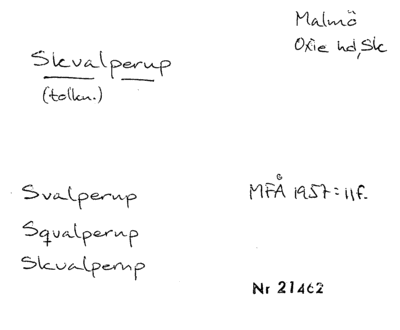 Malmö
Oxie hd, Sk
Skvalperup
(tolkn.)
Svalperup
MFÅ 1957:11f.
Squalperup
Skvalperup
Nr 21462